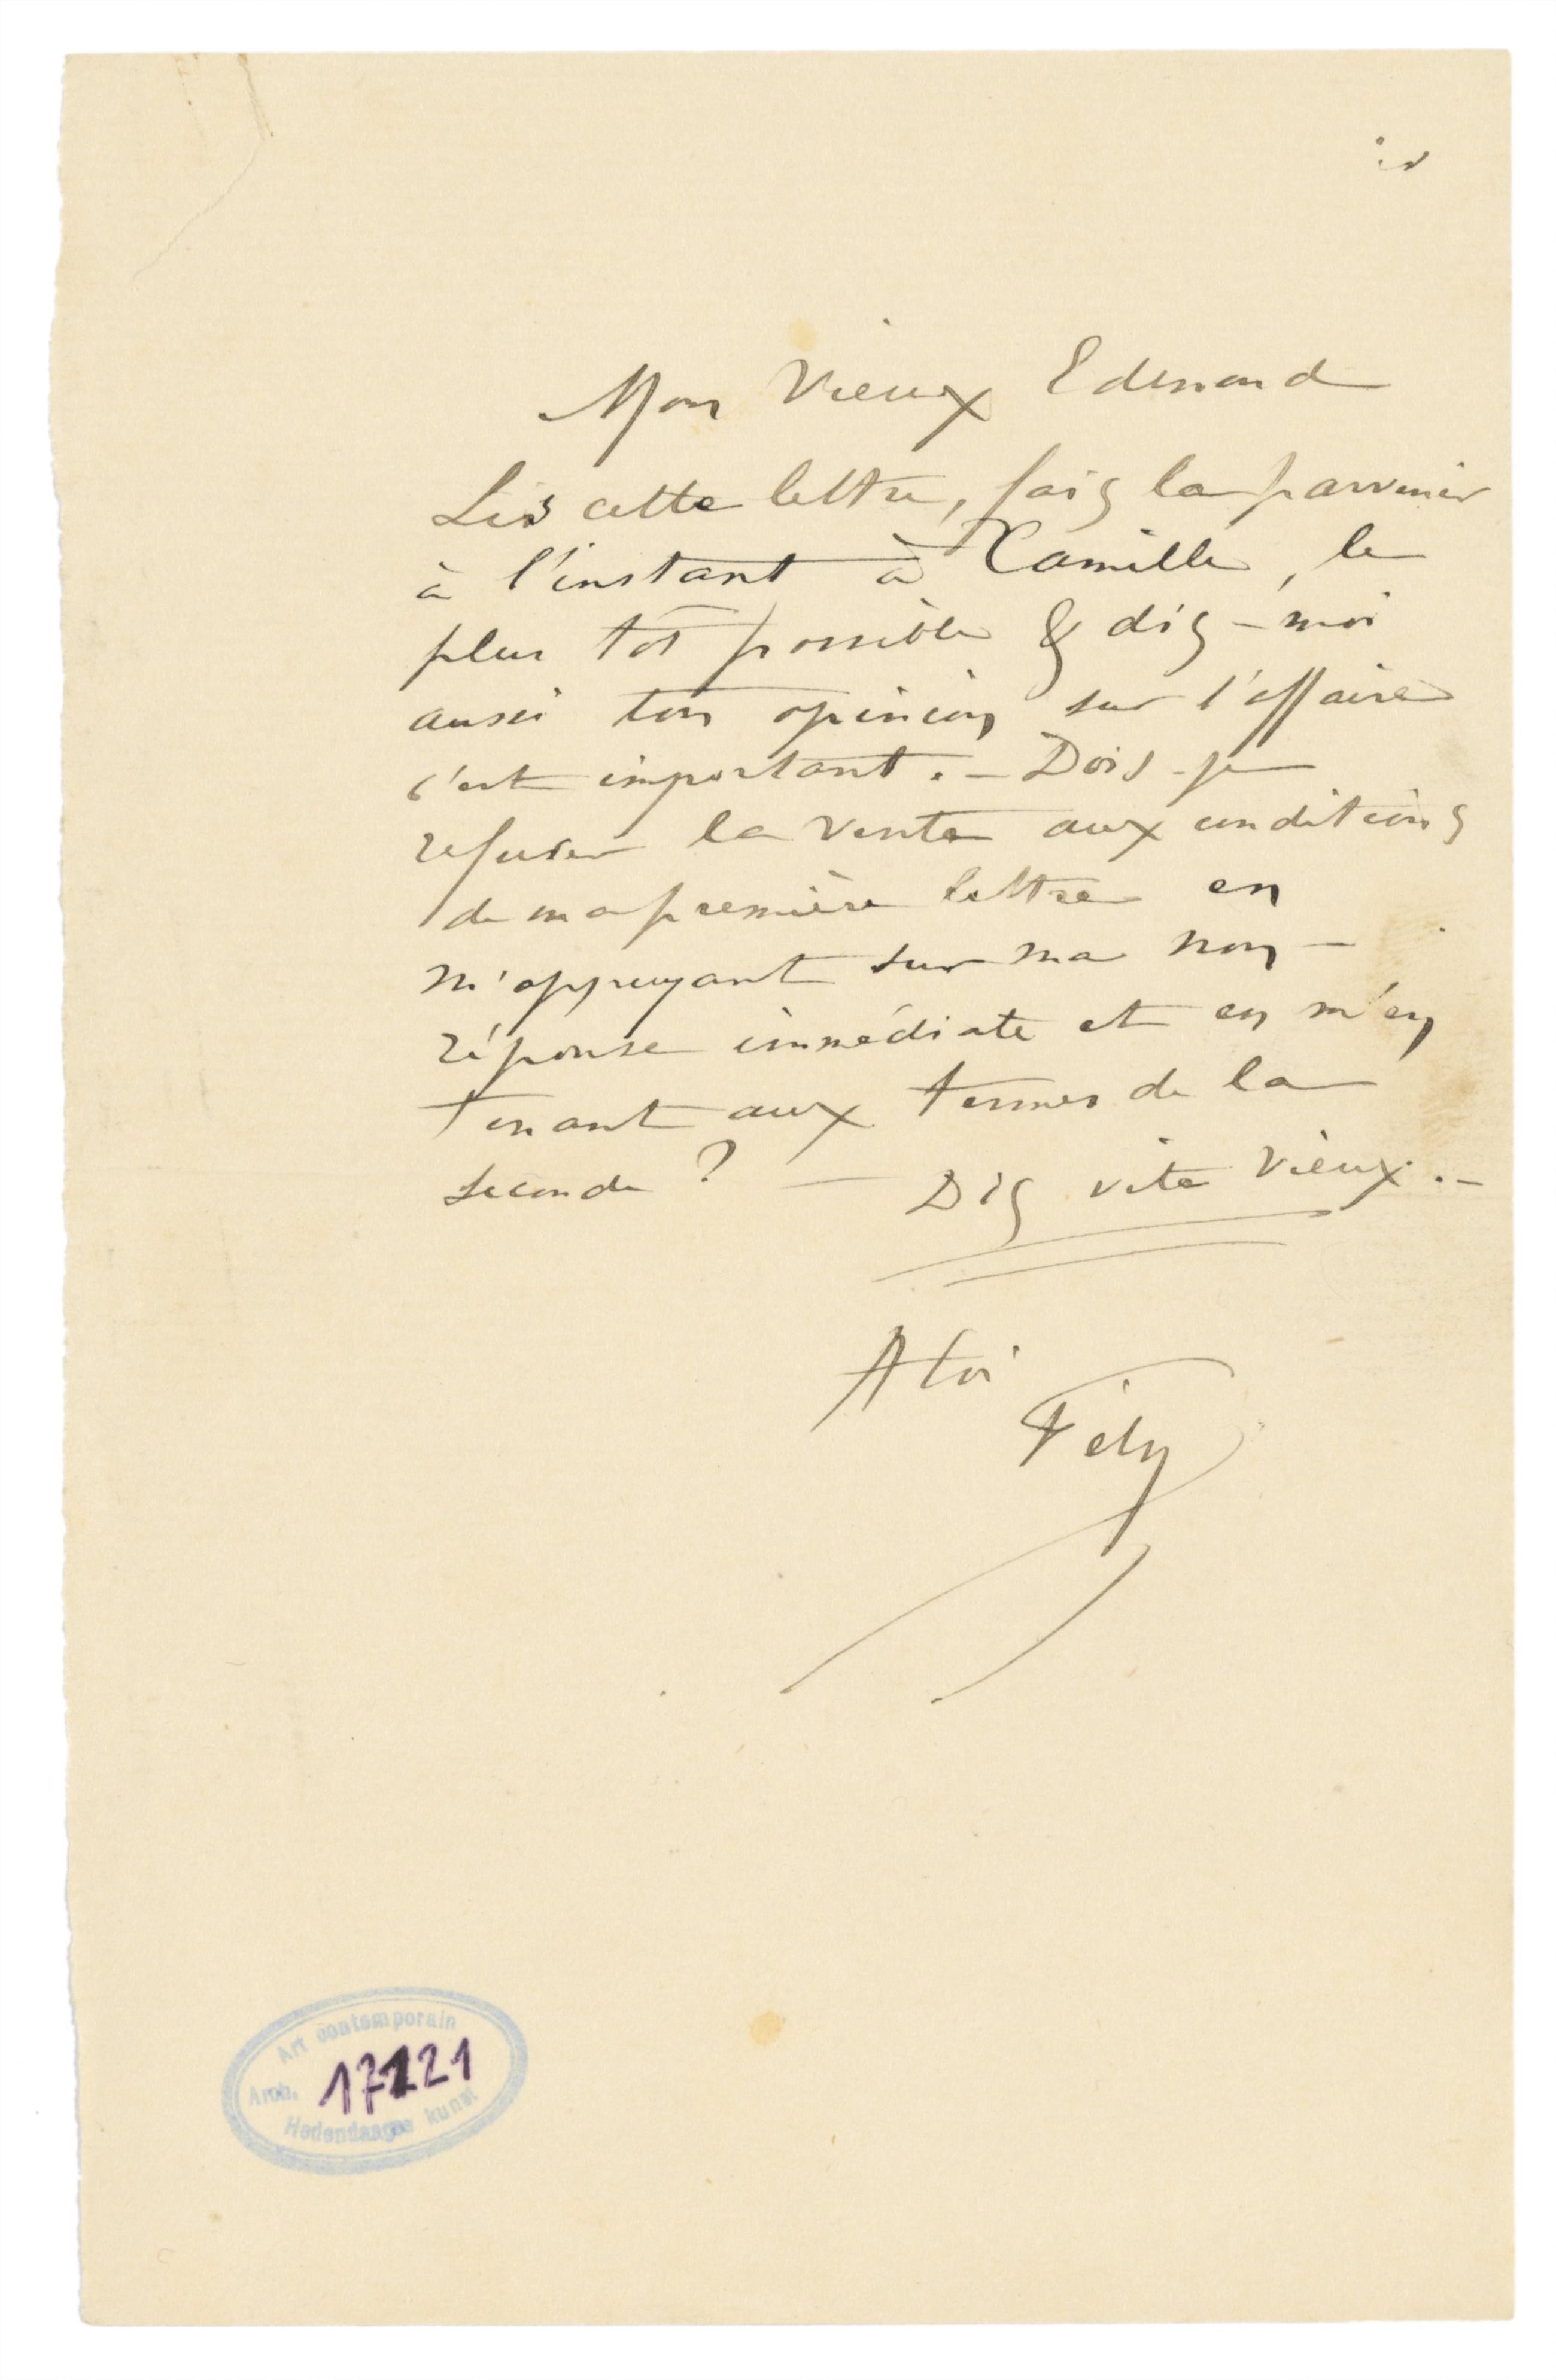 Mon Vieux Edmond
Lis cette lettre, fais la parvenir
à l'instant à Camille, le
plus tôt possible & dis-moi
aussi ton opinion sur l'affaire
c'est important. — Dois-je
refuser la vente aux conditions
de ma première lettre en
m'appuyant sur ma non-
réponse immédiate et en m'en
tenant aux termes de la
seconde ? — Dis vite vieux. —
A toi
Fély
Art contemporain
Arch. 17121
Hedendaagse kunst